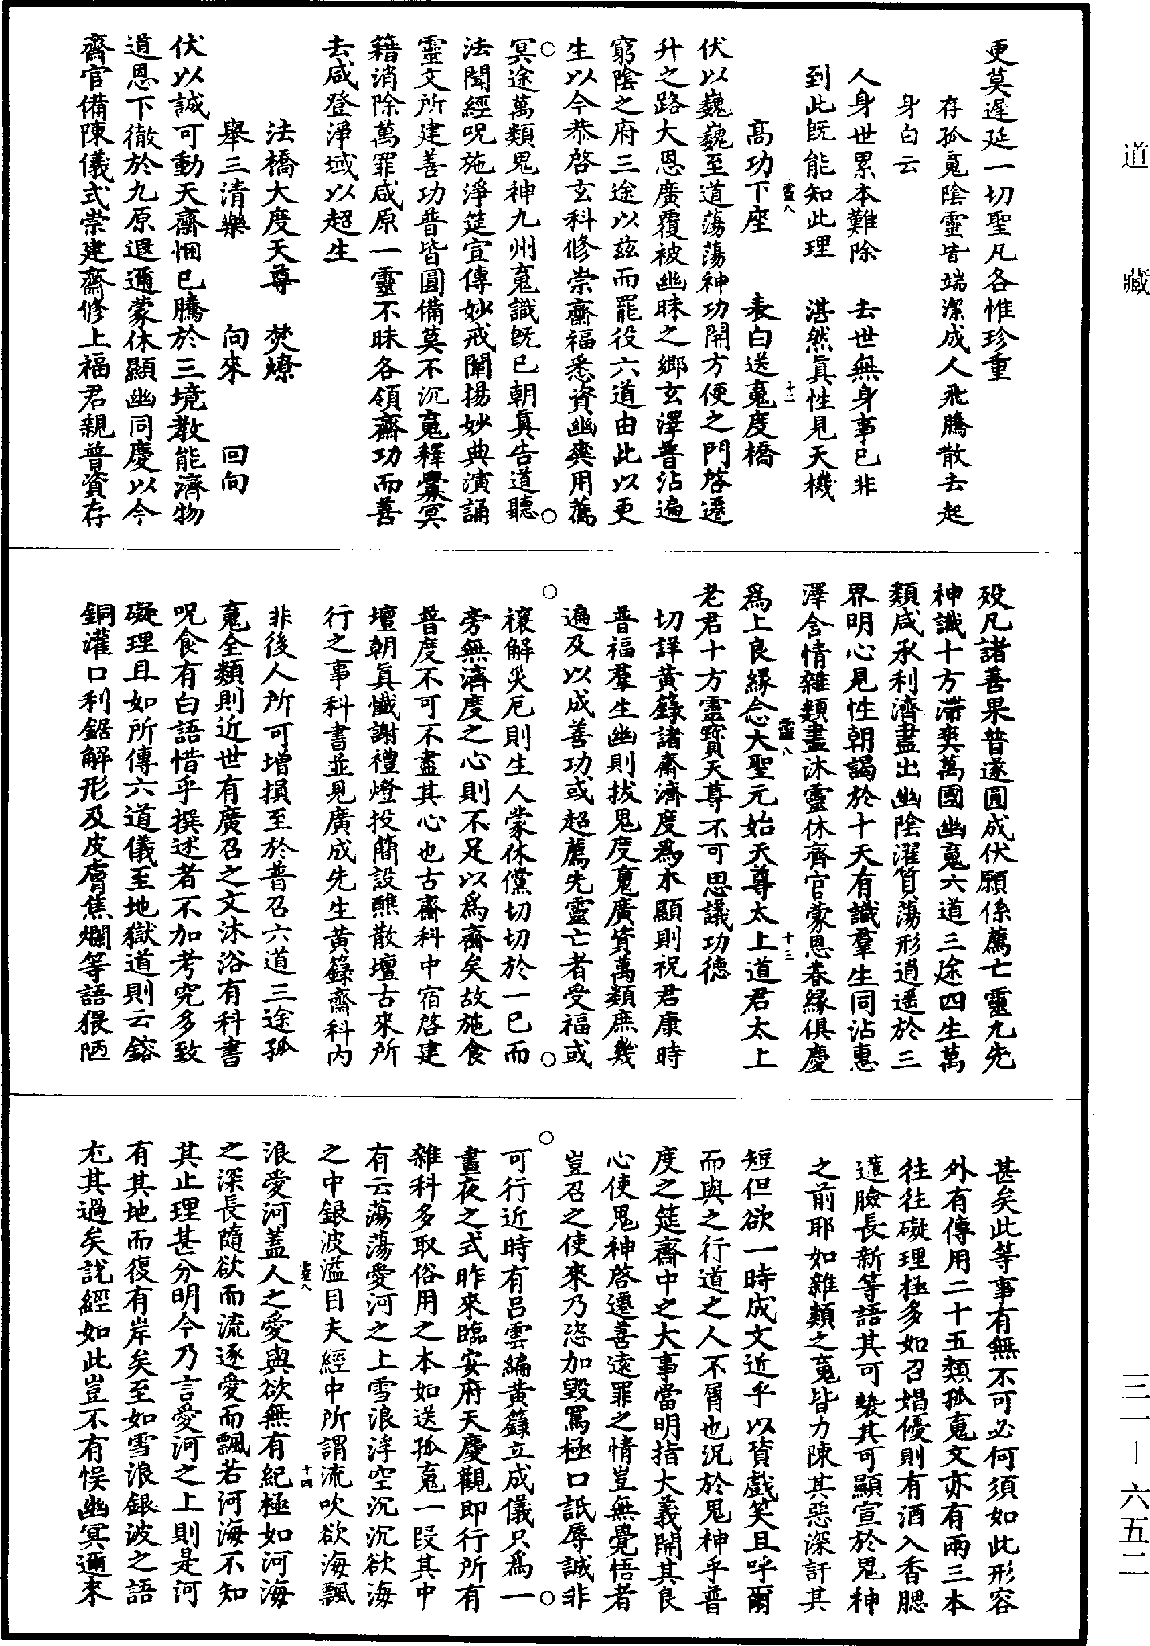 更莫遲延一切聖凡各惟珍重
存孤䰟陰靈皆端潔成人飛騰散去起
身白云
人身世累本難除　去世無身事已非
到此旣能知此理　湛然眞性見天機
高功下座　表白送䰟度橋
伏以巍巍至道蕩蕩神功開方便之門啓遷
升之路大恩廣覆被幽昧之鄉玄澤普沾遍
窮陰之府三途以兹而罷役六道由此以更
生以今恭啓玄科修崇齋福悉資幽爽用薦
冥途萬類鬼神九州䰟識旣已朝真告道聽
法聞經呪施淨筵宣傳妙戒闡揚妙典演誦
靈文所建善功普皆圓備莫不沉䰟釋爨冥
籍消除萬罪咸原一靈不昧各領齋功而善
去咸登淨域以超生
法橋大度天尊　焚燎
舉三清樂　向來　回向
伏以誠可動天齋悃已騰於三境教能濟物
道恩下徹於九原遐邇蒙休顯幽同慶以今
齋官備陳儀式崇建齋修上福君親普資存
殁凡諸善果普遂圓成伏願係薦亡靈九先
神識十方滯爽萬國幽䰟六道三途四生萬
類咸承利濟盡出幽陰濯質蕩形逍遥於三
界明心見性朝謁於十天有識羣生同沾惠
澤含情雜類盡沐靈休齊官蒙恩眷緣俱慶
爲上良緣念大聖元始天尊太上道君太上
老君十方靈寳天尊不可思議功德
切詳黄籙諸齋濟度爲本顯則祝君康時
普福羣生幽則拔鬼度䰟廣資萬類庶幾
遍及以成善功或超薦先靈亡者受福或
禳解災厄則生人蒙休儻切切於一已而
旁無濟度之心則不足以爲齋矣故施食
普度不可不盡其心也古齋科中宿啓建
壇朝眞懺謝禮燈投簡設醮散壇古來所
行之事科書並見廣成先生黄籙齋科内
非後人所可增損至於普召六道三途孤
䰟全類則近世有廣召之文沐浴有科書
呪食有白語惜乎撰述者不加考究多致
礙理且如所傳六道儀至地獄道則云鎔
銅灌口利鋸解形及皮膚焦爛等語猥陋
甚矣此等事有無不可必何須如此形容
外有傳用二十五類孤䰟文亦有兩三本
往往礙理極多如召娼優則有酒入香腮
蓮臉長新等語其可褻其可顯宣於鬼神
之前耶如雜類之䰟皆力陳其惡深訐其
短但欲一時成文近乎以貨戲笑且呼爾
而與之行道之人不屑也況於鬼神乎普
度之筵齋中之大事當明指大義開其良
心使鬼神啓遷善遠罪之情豈無覺悟者
豈召之使來乃恣加毀罵極口詆辱誠非
可行近時有呂雲編黄籙立成儀只爲一
晝夜之式昨來臨安府天慶觀即行所有
雜科多取俗用之本如送孤䰟一段其中
有云蕩蕩愛河之上雪浪浮空沉沉欲海
之中銀波溢目夫經中所謂流吹欲海飄
浪愛河蓋人之愛與欲無有紀極如河海
之深長隨欲而流逐愛而飄若河海不知
其止理甚分明今乃言愛河之上則是河
有其地而復有岸矣至如雪浪銀波之語
尤其過矣說經如此豈不有悞幽冥邇來
靈八
十二
靈八
十三
靈八
十四
道藏
三一－六五二